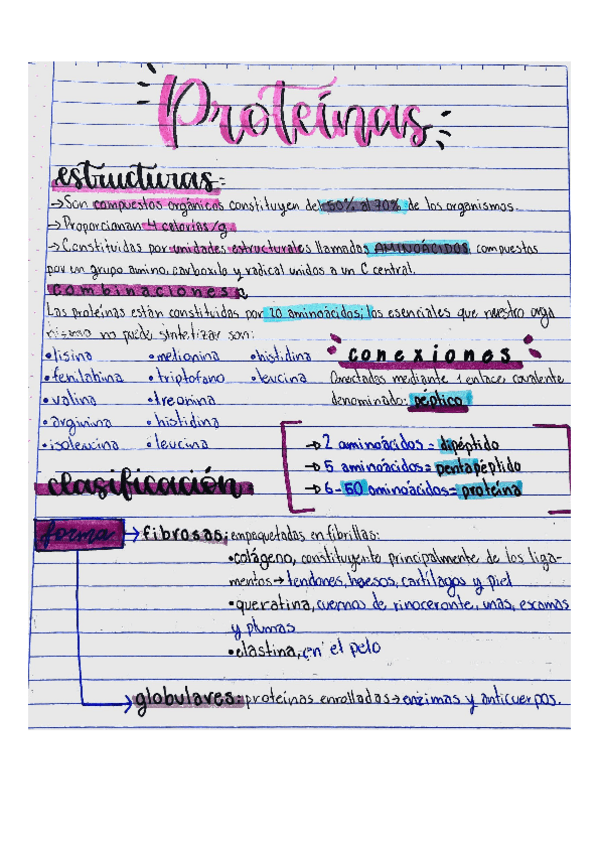 Proteínas
estructuras:
→Son compuestos orgánicos constituyen del 50% al 70% de los organismos.
→Proporcionan 4 calorías/g
→Constituidas por unidades estructurales llamados AMINOÁCIDOS, compuestas
por un grupo amino, carboxilo y radical unidos a un C central.
combinaciones
Las proteínas están constituidas por 20 aminoácidos; los esenciales que nuestro orga
nismo no puede sintetizar son:
•lisina •metionina •histidina
•fenilalnina •triptofano •leucina
•valina •treonina
•arginina •histidina
•isoleucina •leucina
conexiones
Conectados mediante 1 enlace covalente
denominado: péptico
→2 aminoácidos = dipéptido
→5 aminoácidos = pentapéptido
→6-50 aminoácidos = proteína
clasificación
forma → fibrosas: empaquetadas en fibrillas:
•colágeno, constituyente principalmente de los liga-
mentos → tendones, huesos, cartílagos y piel
•queratina, cuernos de rinoceronte, unas, escamas
y plumas
•elastina, en el pelo
globulares: proteínas enrolladas → enzimas y anticuerpos.